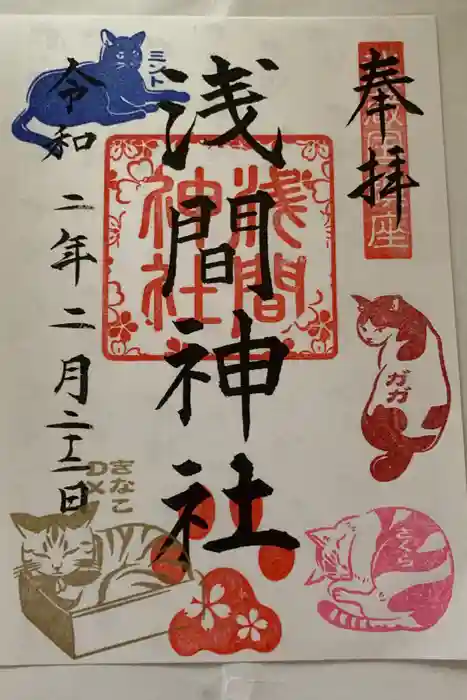 奉拝
浅間神社
浅間
神社
令和二年二月二十二日
ミント
ガガ
さくら
きなこ
DX